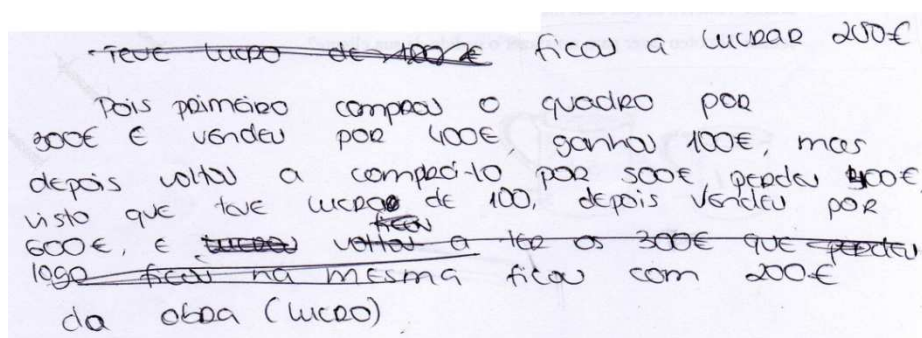 Teve lucro de 100€ ficou a lucrar 200€
Pois primeiro comprou o quadro por
300€ e vendeu por 400€, ganhou 100€, mas
depois voltou a comprá-lo por 500€ perdeu 400€,
visto que teve lucro de 100, depois vendeu por
ficou
600€, e lucrou voltou a ter os 300€ que perdeu
logo ficou na mesma ficou com 200€
da obra (lucro)